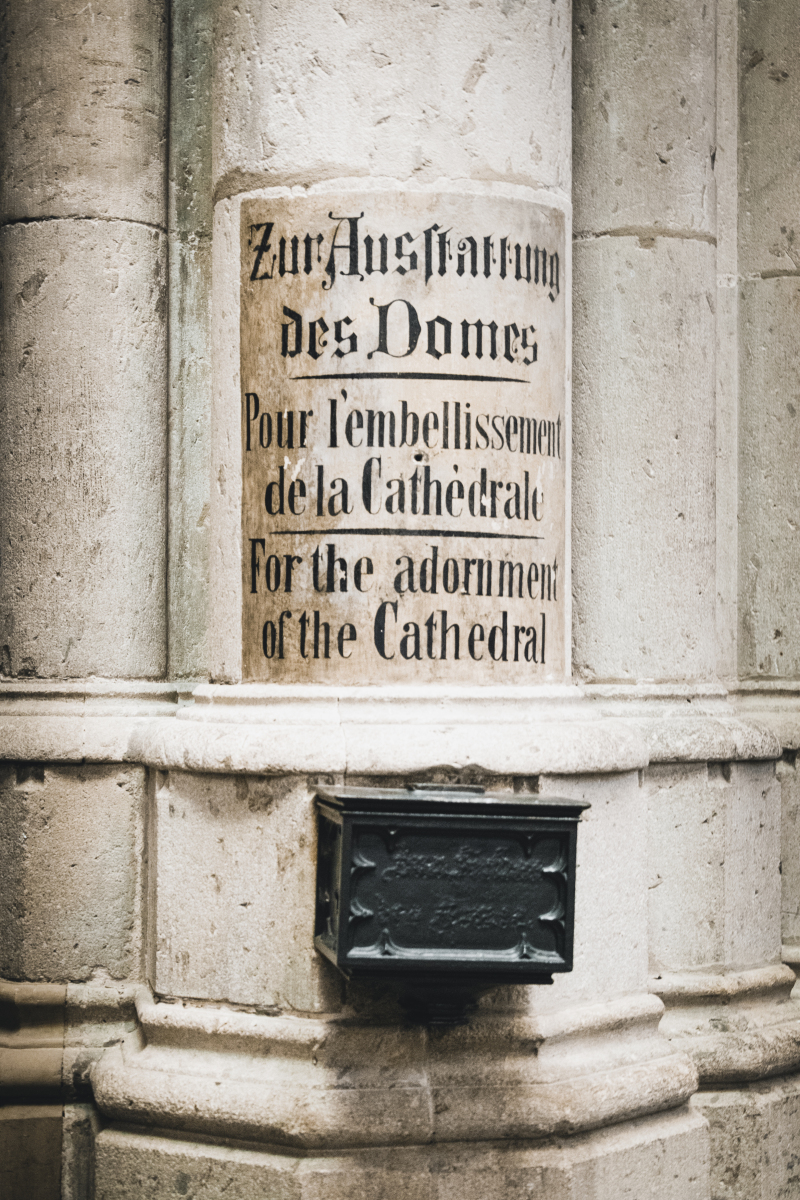 Zur Ausſtattung
des Domes
Pour l'embellissement
de la Cathėdrale
For the adornment
of the Cathedral